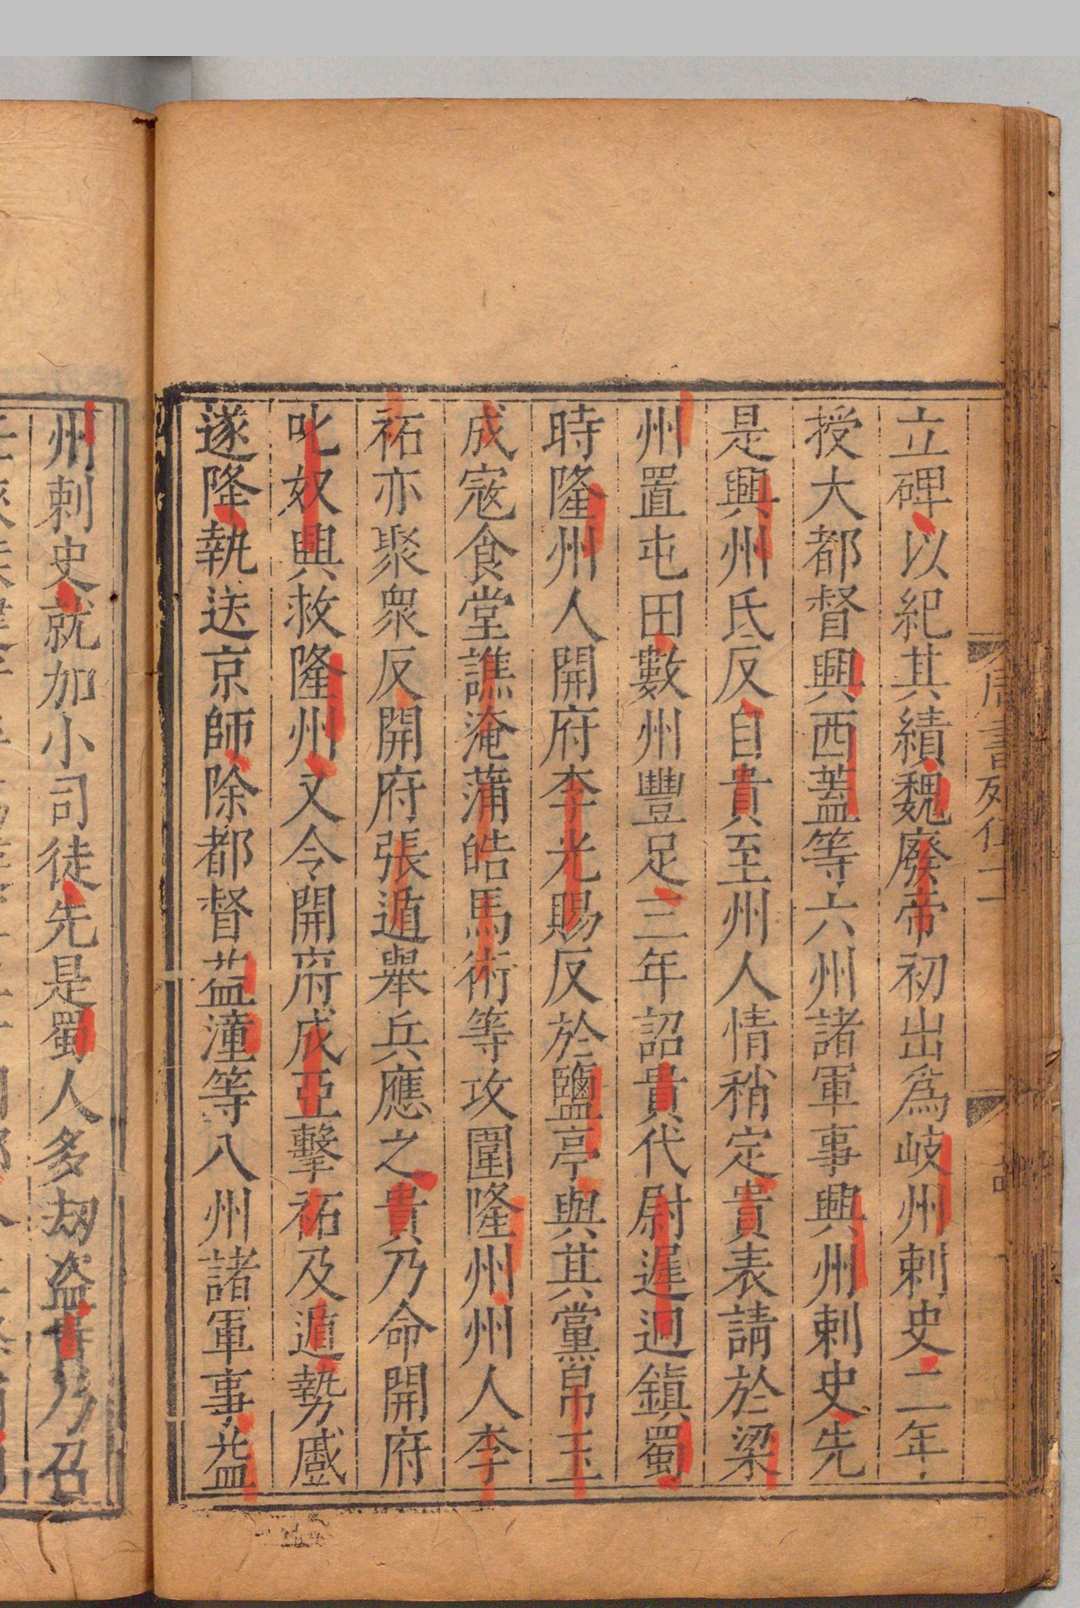 周書列
立碑以紀其績魏廢帝初出爲岐州刺史二年
授大都督興西蓋等六州諸軍事興州刺史先
是興州氐反自貴至州人情稍定貴表請於梁
州置屯田數州豐足三年詔貴代尉遲迥鎮蜀
時隆州人開府李光賜反於鹽亭與其黨帛玉
成寇食堂譙淹蒲皓馬術等攻圍隆州州人李
祏亦聚衆反開府張遁舉兵應之貴乃命開府
叱奴興救隆州又令開府成亞擊祏及遁勢蹙
遂隆執送京師除都督益潼等八州諸軍事益
州刺史就加小司徒先是蜀人多劫盜貴乃召